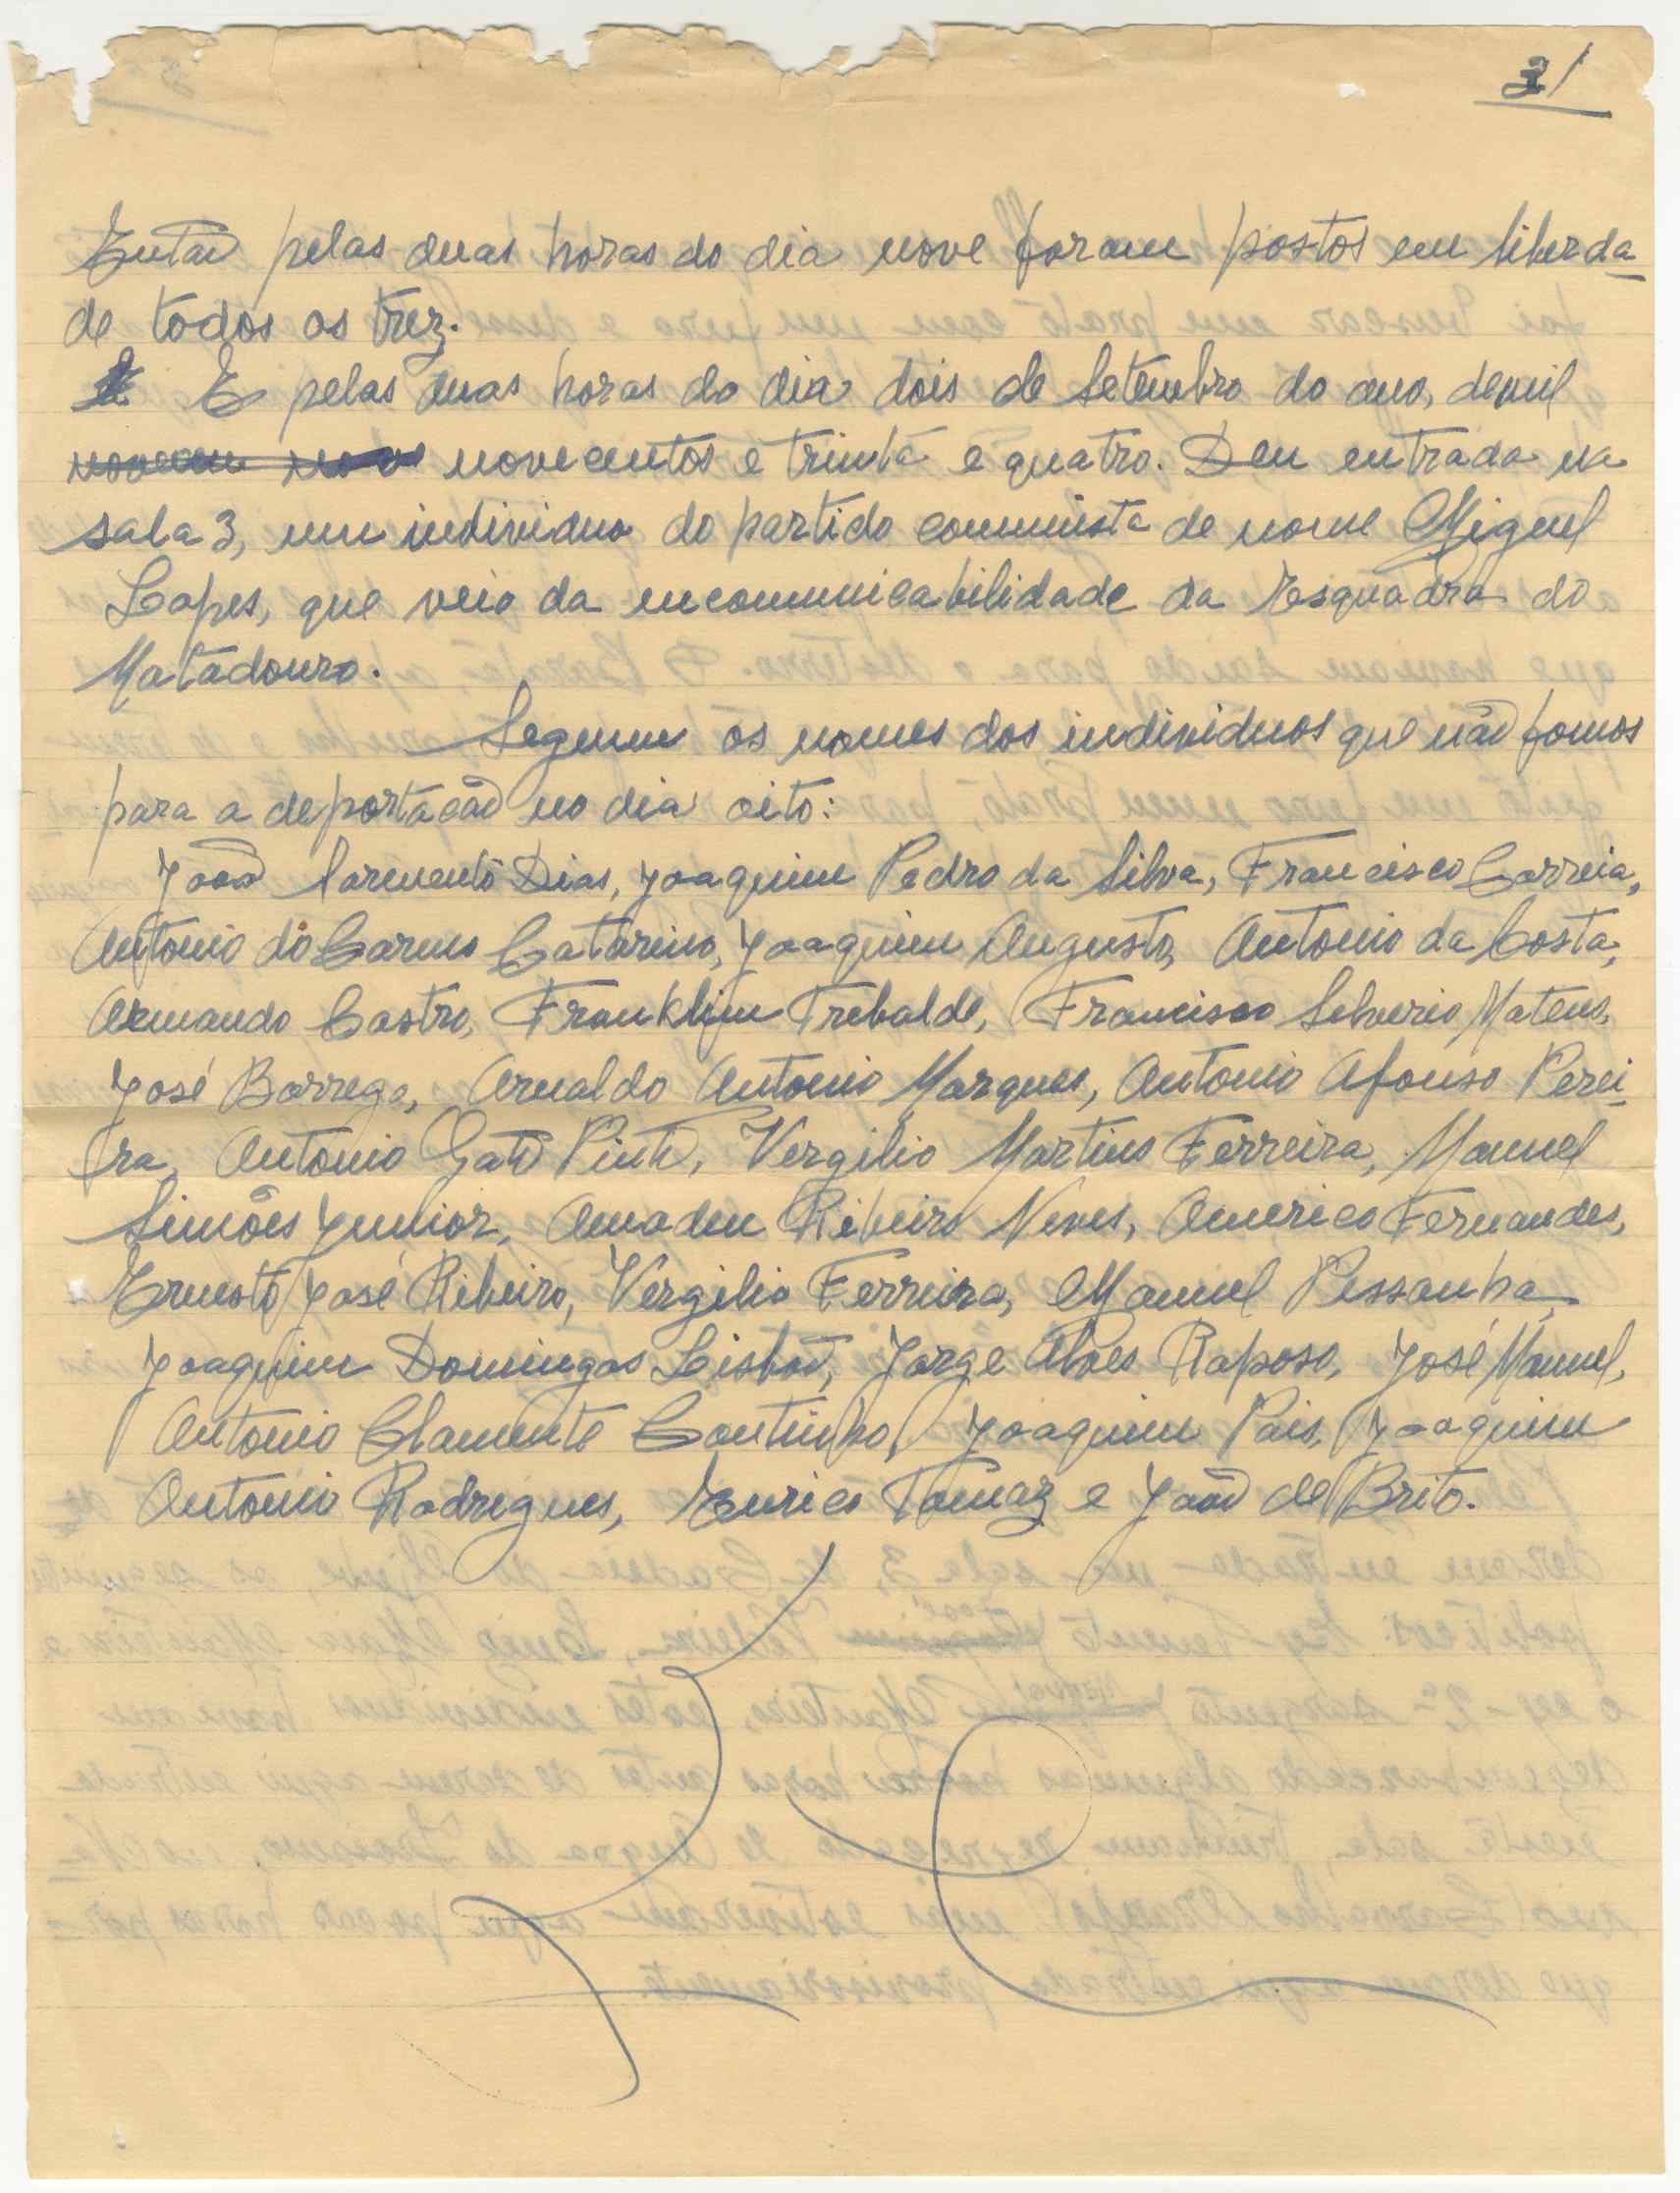 31
Então pelas duas horas do dia nove foram postos em liberda-
de todos os trez.
E pelas duas horas do dia dois de Setembro do ano, de mil
novecentos e trinta e quatro. Deu entrada na
sala 3, um individuo do partido comunista de nome Miguel
Lopes, que veio da encomunicabilidade da Esquadra do
Matadouro.
Seguem os nomes dos individuos que não fomos
para a deportação no dia oito:
João Sarmento Dias, Joaquim Pedro da Silva, Francisco Correia,
Antonio do Carmo Catarino, Joaquim Augusto, Antonio da Costa,
Armando Castro, Franklim Trebalde, Francisco Silverio Mateus,
José Barrego, Arnaldo Antonio Marques, Antonio Afonso Perei-
ra, Antonio Gato Pinto, Vergilio Martins Ferreira, Manuel
Simões Junior, Amadeu Ribeiro Neves, Americo Fernandes,
Ernesto José Ribeiro, Vergilio Ferreira, Manuel Pessanha,
Joaquim Domingos Lisboa, Jorge Alves Raposo, José Manuel,
Antonio Clamente Coutinho, Joaquim Pais, Joaquim
Antonio Rodrigues, Eurico Tomaz e João de Brito.